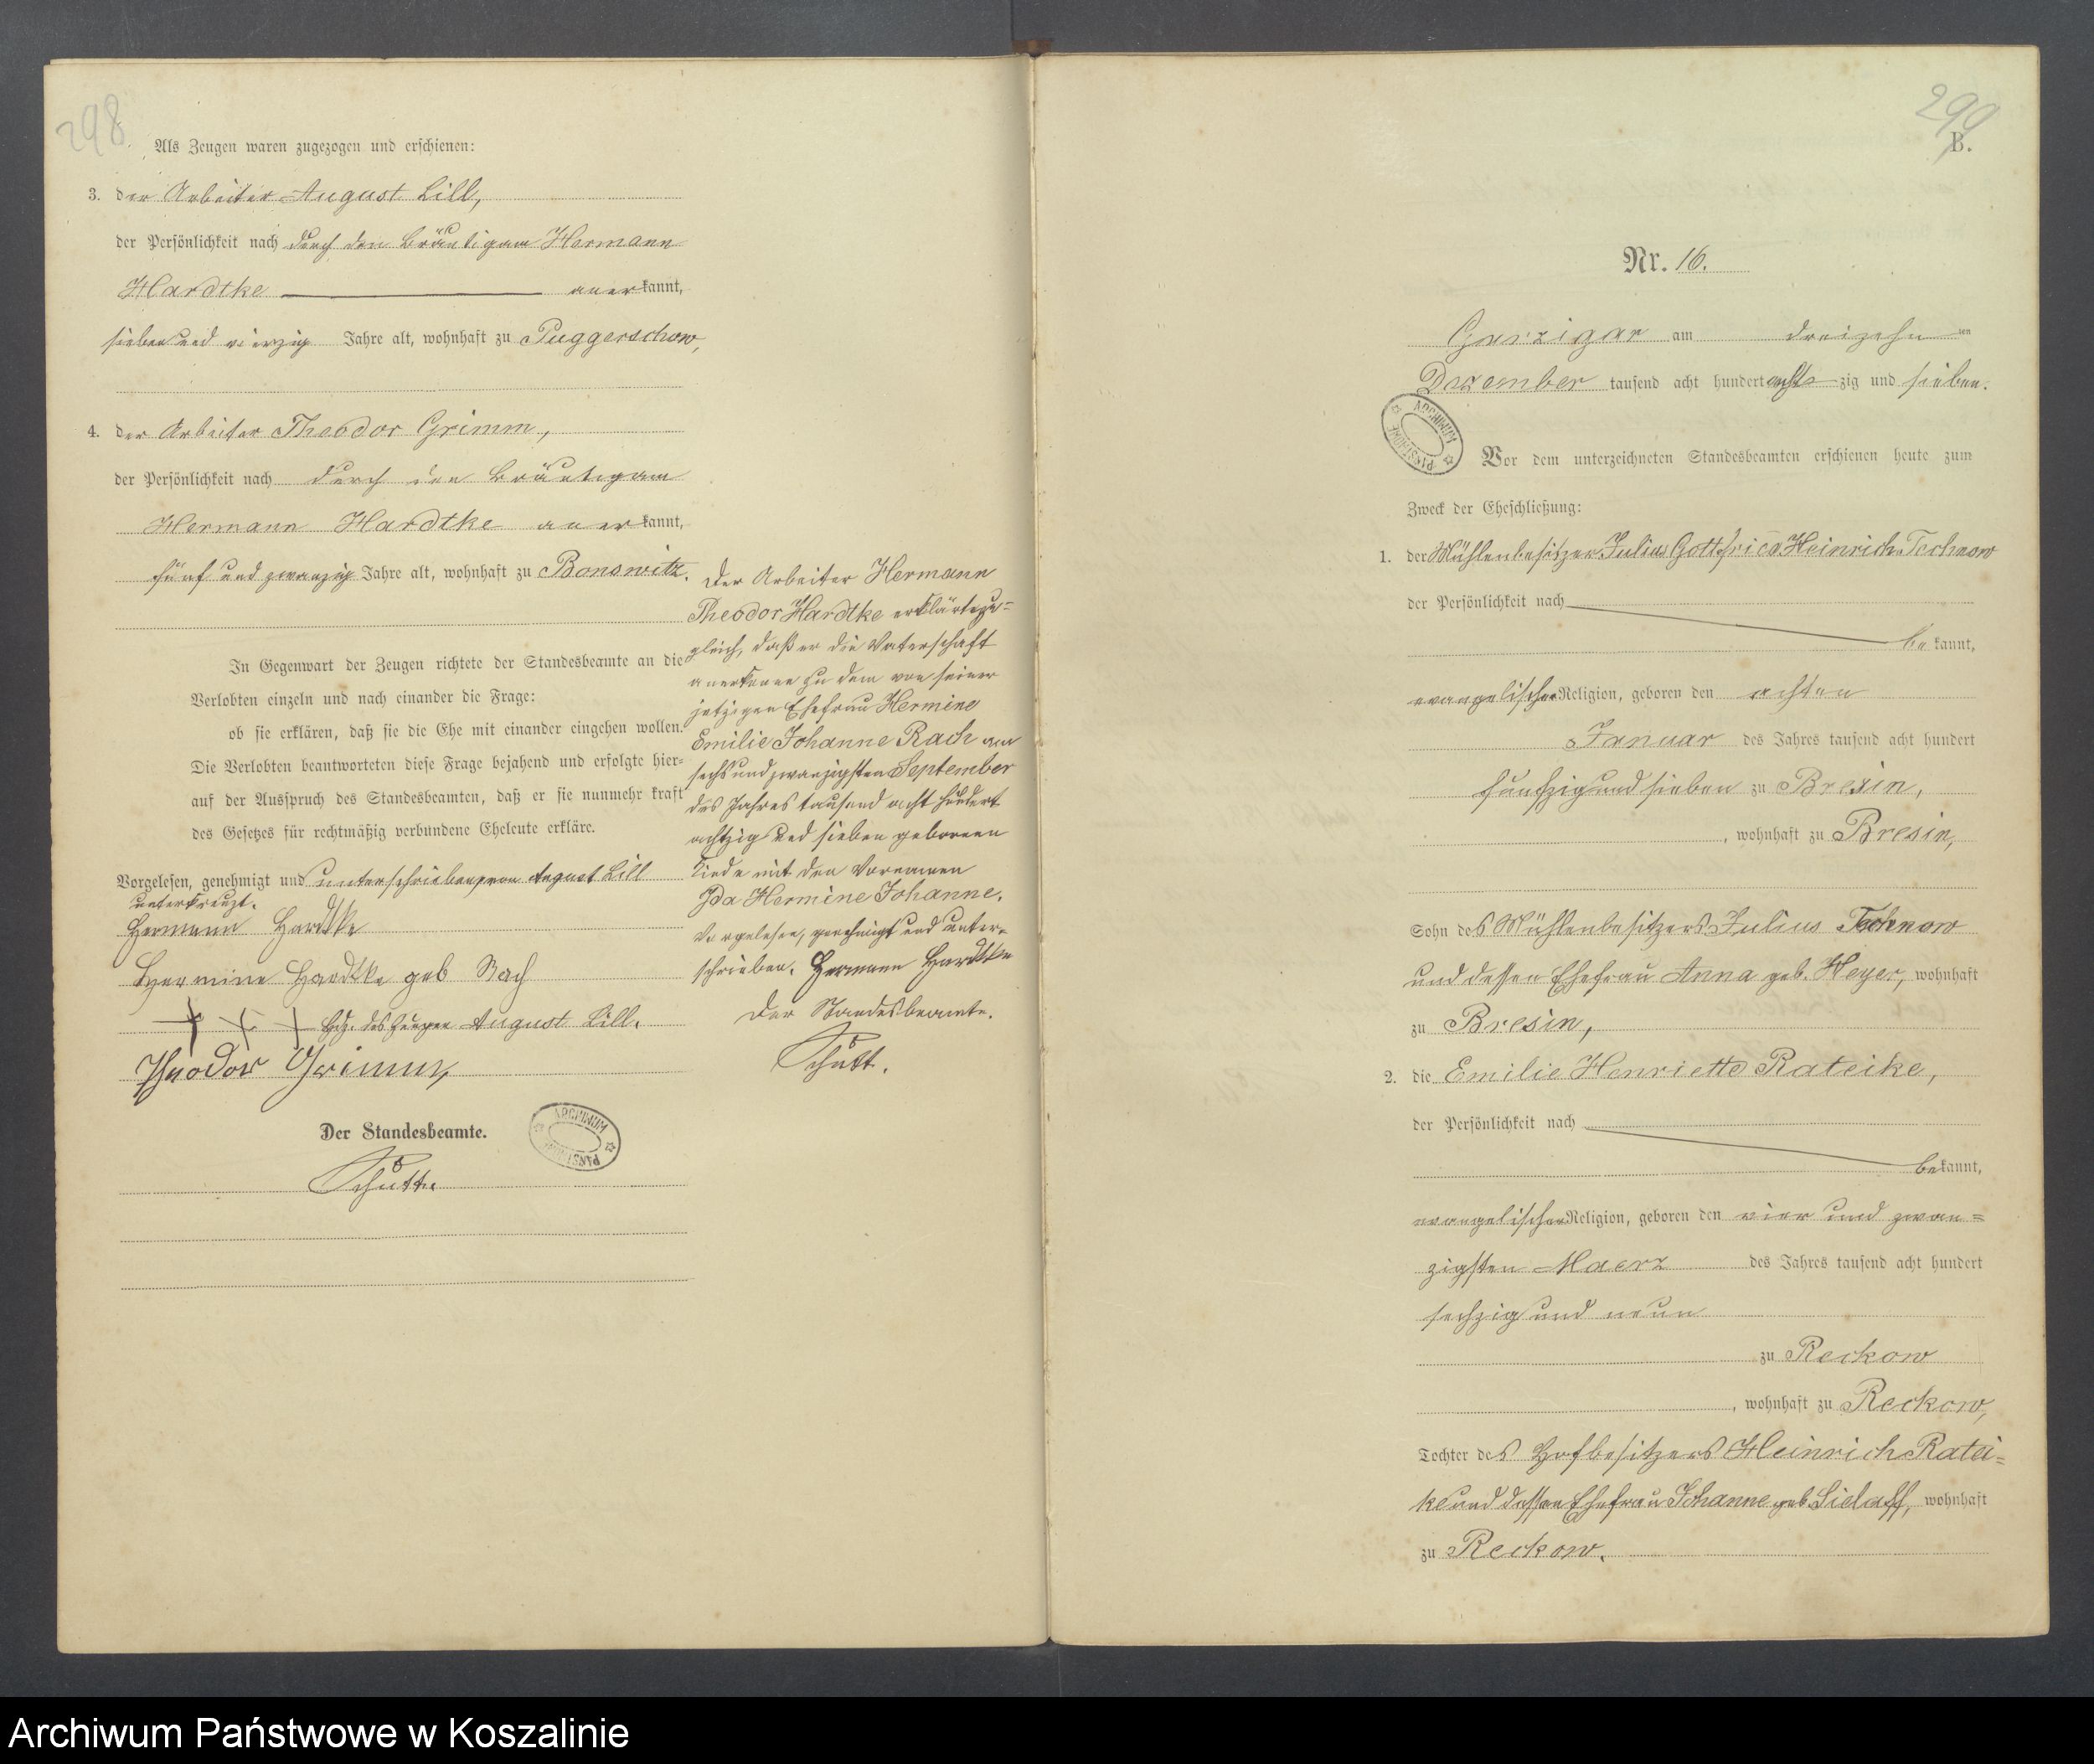 298.
Als Zeugen waren zugezogen und erschienen:
3. der Arbeiter August Lill,
der Persönlichkeit nach durch den Bräutigam Hermann
Hardtke anerkannt,
sieben und vierzig Jahre alt, wohnhaft zu Puggerschow,
4. der Arbeiter Theodor Grimm,
der Persönlichkeit nach durch den Bräutigam
Hermann Hardtke anerkannt,
fünf und zwanzig Jahre alt, wohnhaft zu Bonswitz.
In Gegenwart der Zeugen richtete der Standesbeamte an die
Verlobten einzeln und nach einander die Frage:
ob sie erklären, daß sie die Ehe mit einander eingehen wollen.
Die Verlobten beantworteten diese Frage bejahend und erfolgte hier-
auf der Ausspruch des Standesbeamten, daß er sie nunmehr kraft
des Gesetzes für rechtmäßig verbundene Eheleute erkläre.
Vorgelesen, genehmigt und unterschrieben, von August Lill
unterkreuzt.
Hermann Hardtke
Hermine Hardtke geb Rach
+ + + Hdz. des Zeugen August Lill.
Theodor Grimm
Der Standesbeamte.
Schütt.
ARCHIWUM
PAŃSTWOWE
Der Arbeiter Hermann
Theodor Hardtke erklärte zu=
gleich, daß er die Vaterschaft
anerkenne zu dem von seiner
jetzigen Ehefrau Hermine
Emilie Johanne Rach am
sechs und zwanzigsten September
des Jahres tausend acht hundert
achtzig und sieben geborenen
Kinde mit den Vornamen
Ida Hermine Johanne.
Vorgelesen, genehmigt und unter-
schrieben. Hermann Hardtke
Der Standesbeamte.
Schütt.
299
B.
Nr. 16.
Garzigar am dreizehnten
Dezember tausend acht hundert achtzig und sieben.
ARCHIWUM
PAŃSTWOWE
Vor dem unterzeichneten Standesbeamten erschienen heute zum
Zweck der Eheschließung:
1. der Mühlenbesitzer Julius Gottfried Heinrich Technow
der Persönlichkeit nach
bekannt,
evangelischer Religion, geboren den achten
Januar des Jahres tausend acht hundert
fünfzig und sieben zu Bresin,
, wohnhaft zu Bresin,
Sohn des Mühlenbesitzers Julius Technow
und dessen Ehefrau Anna geb. Heyer, wohnhaft
zu Bresin,
2. die Emilie Henriette Rateike,
der Persönlichkeit nach
bekannt,
evangelischer Religion, geboren den vier und zwan=
zigsten Maerz des Jahres tausend acht hundert
sechzig und neun
zu Reckow
, wohnhaft zu Reckow,
Tochter des Hofbesitzers Heinrich Ratei=
ke und dessen Ehefrau Johanne geb. Sielaff, wohnhaft
zu Reckow.
Archiwum Państwowe w Koszalinie